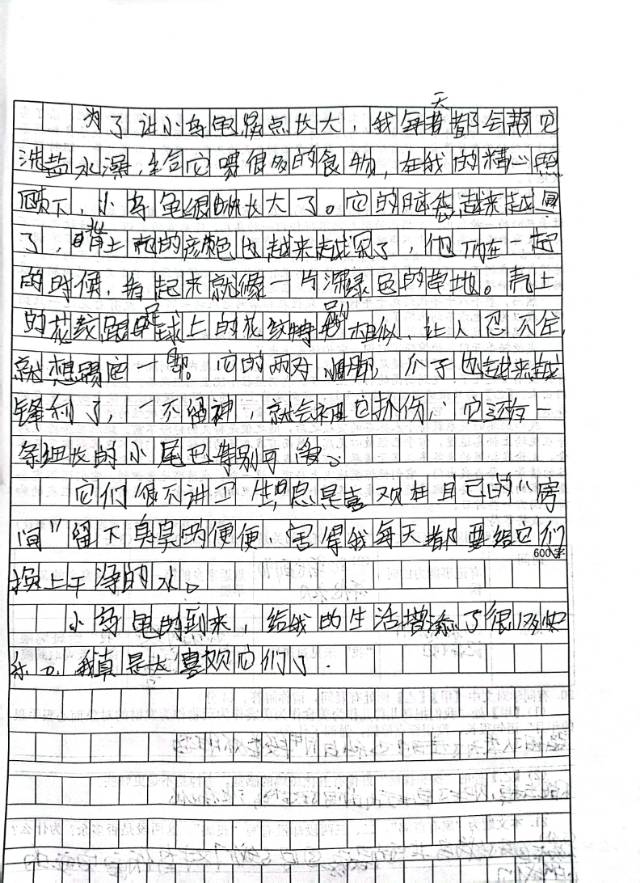 为了让小乌龟快点长大，我每天都会帮它
洗盐水澡，给它喂很多的食物，在我的精心照
顾下，小乌龟很快长大了。它的脑袋越来越圆
了，背上的颜色也越来越深了，他们在一起
的时候，看起来就像一片深绿色的草地。壳上
的花纹跟足球上的花纹特别相似，让人忍不住
就想踢它一脚。它的两对 爪子也越来越
锋利了，一不留神，就会被它扒伤，它还有一
条细长的小尾巴特别可爱。
它们很不讲卫生，总是喜欢在自己的“房
间”留下臭臭的便便，害得我每天都要给它们
600字
换上干净的水。
小乌龟的到来，给我的生活增添了很多快
乐，我真是太喜欢它们了.